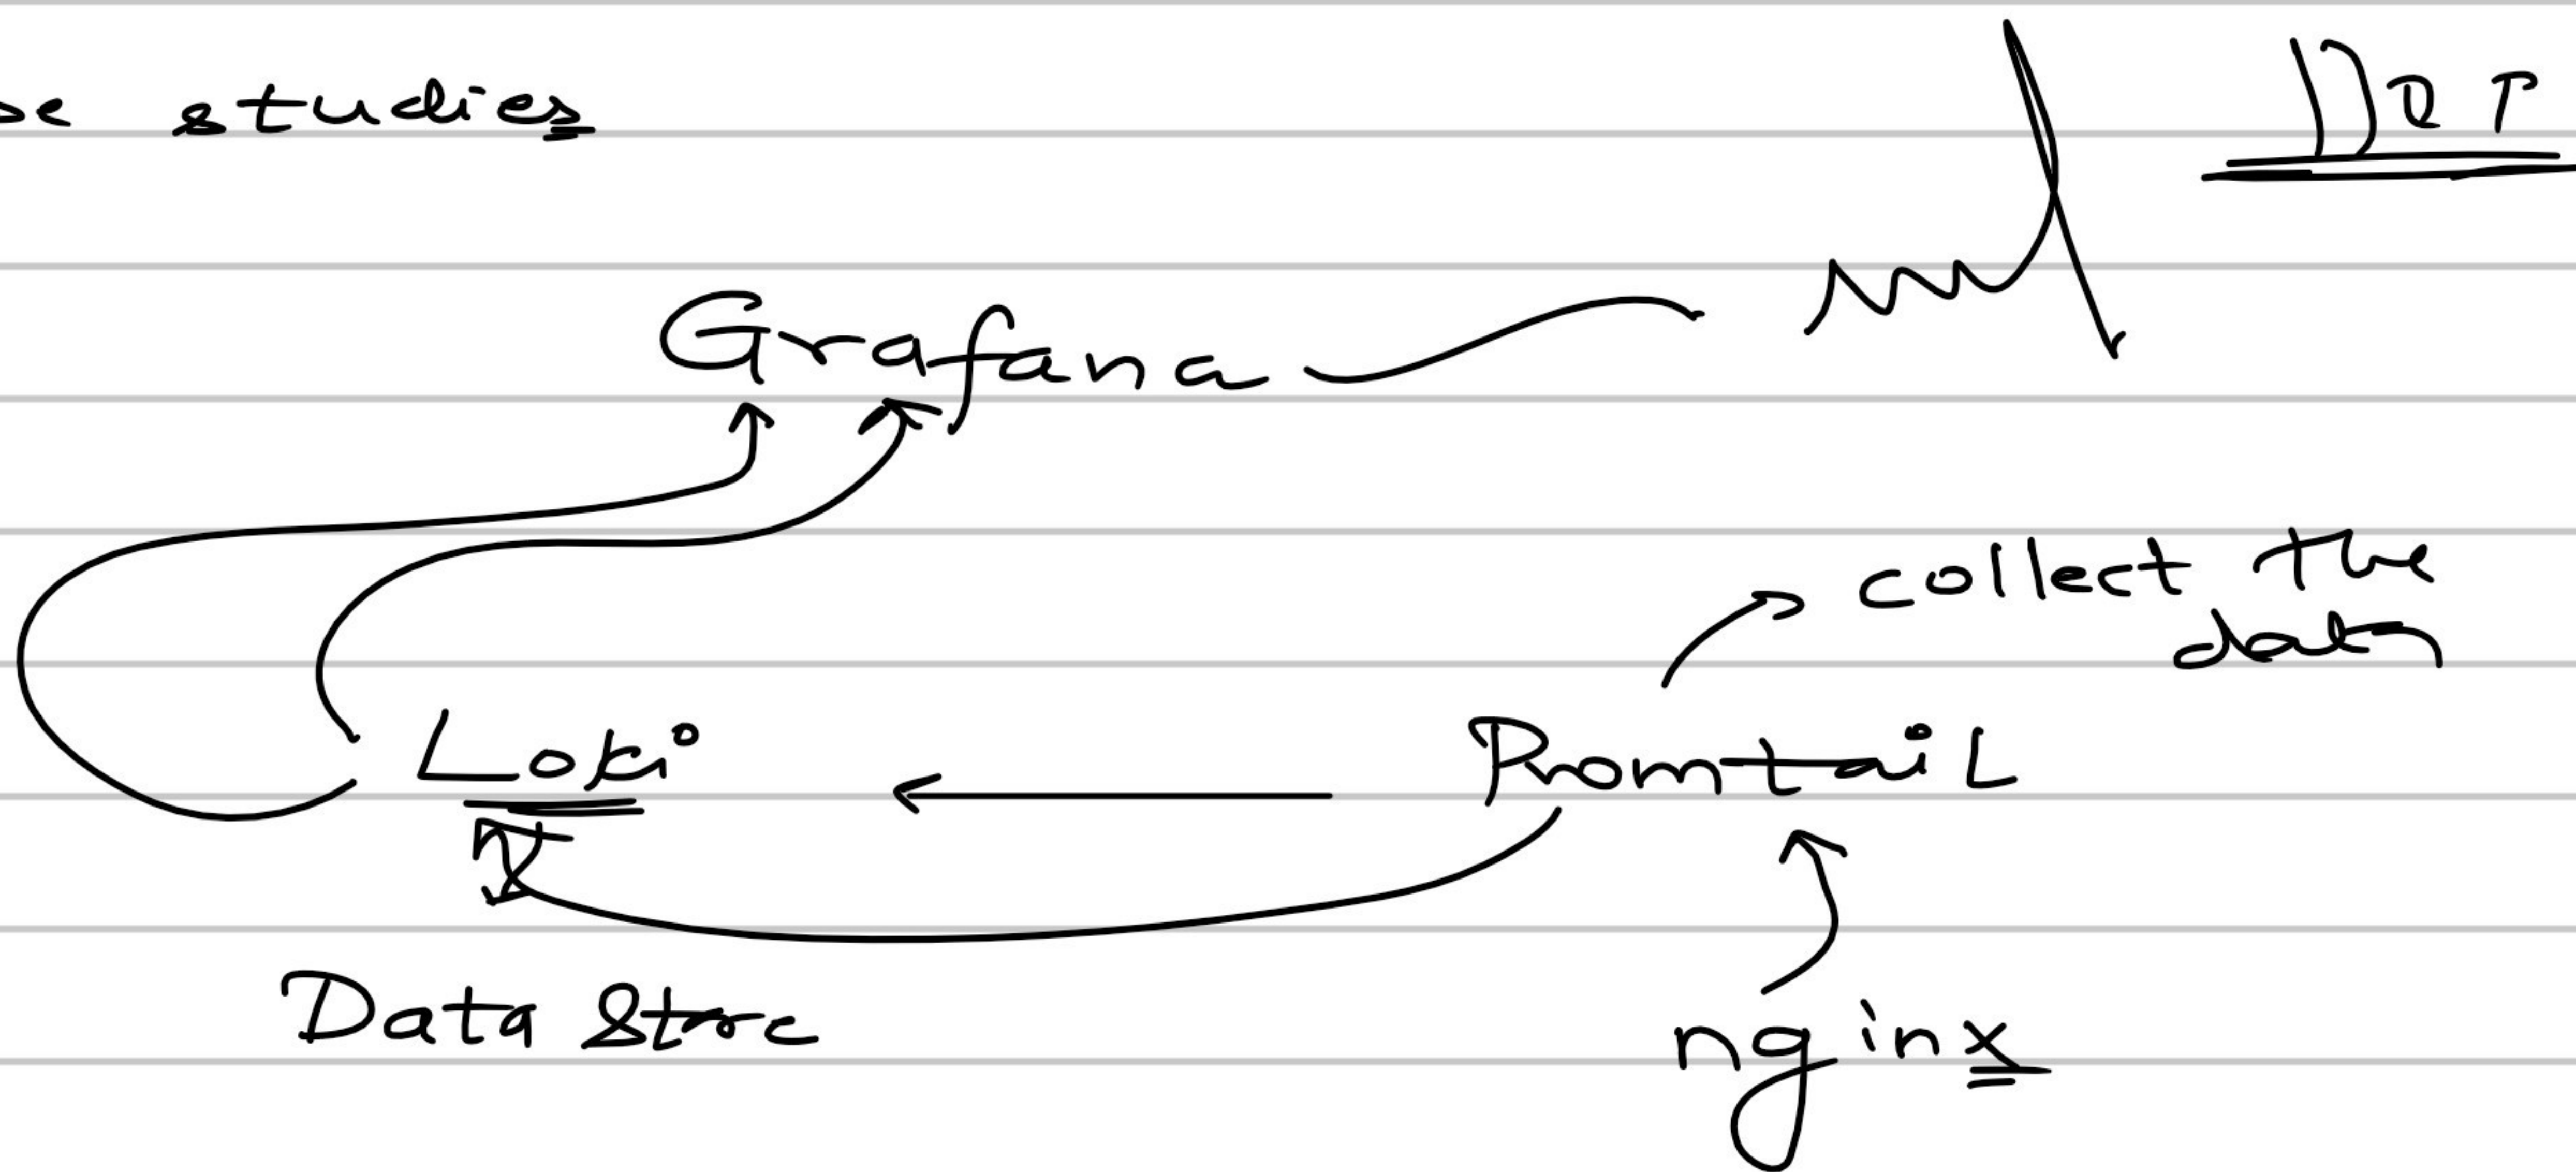 se studies
Grafana
collect the
data
Loki Promtail
Data Store
nginx